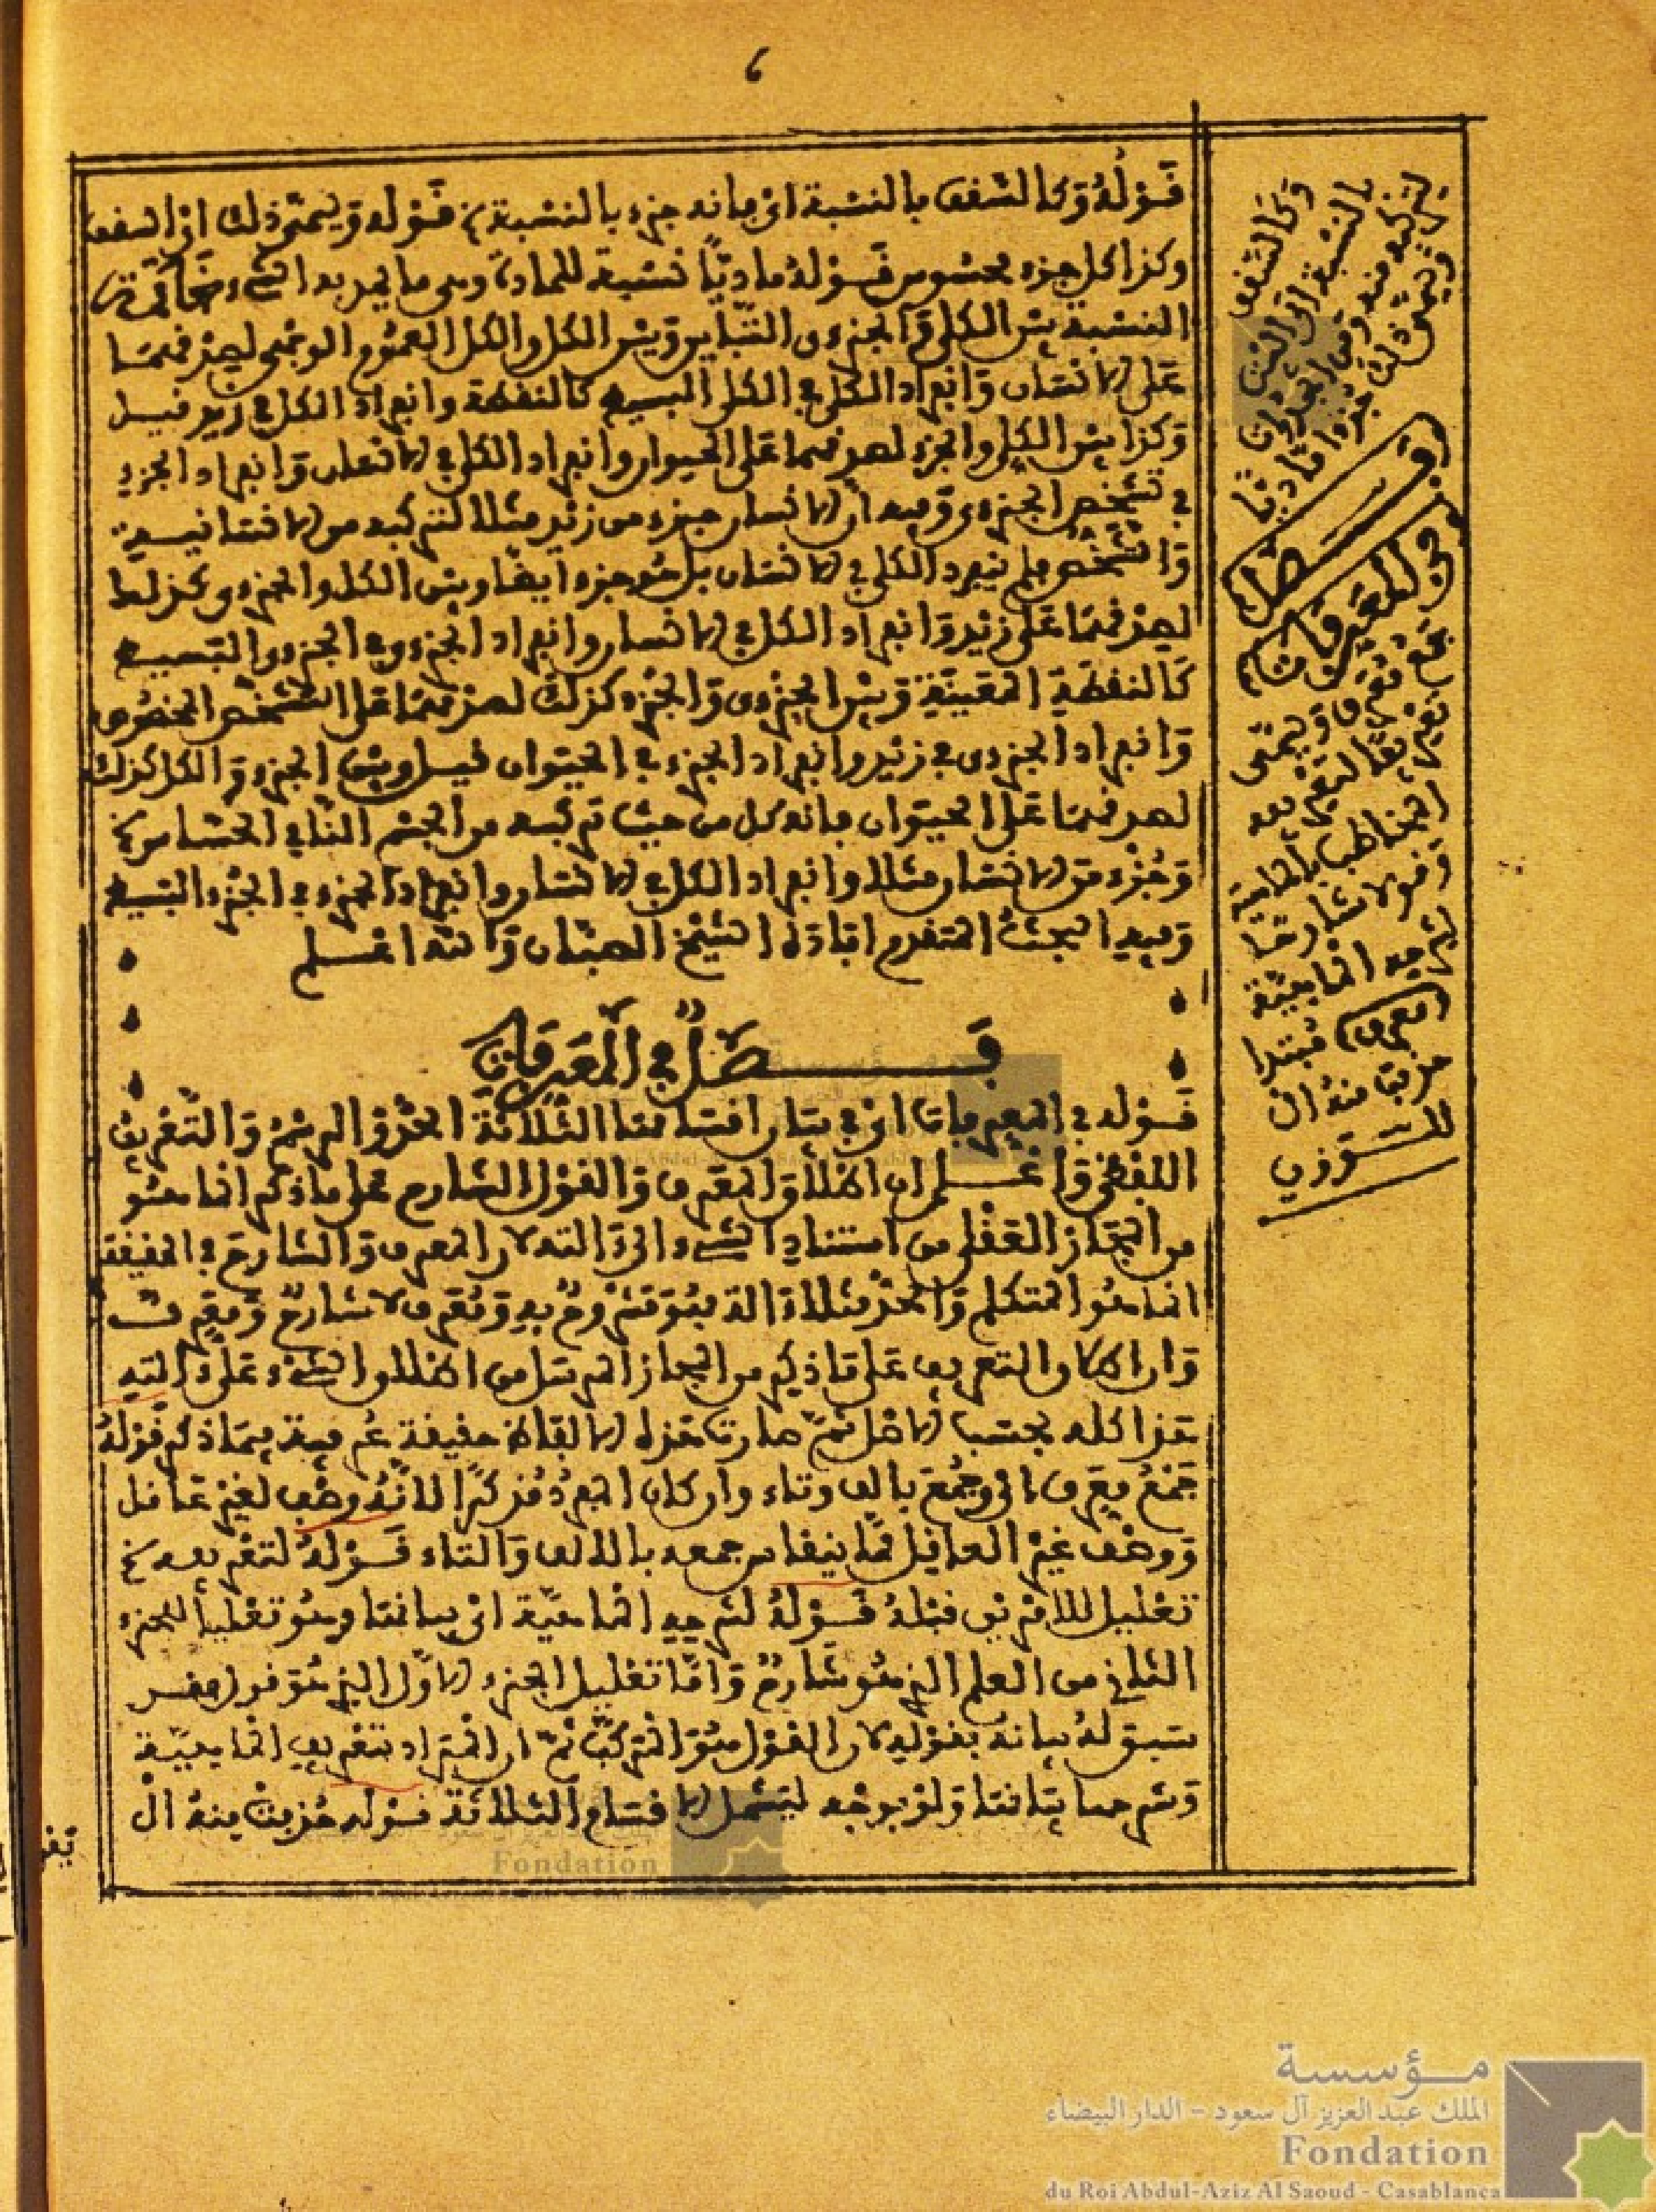 ٦
قوله وكالسقف بالنسبة اي فانه جزء بالنسبة الخ قوله ويسمى ذلك اي السقف
وكذا كل جزء محسوس قوله ماديا نسبة للمادة وهي ما يمر بدا الشيء خاتمة
النسبة بين الكلي والجزءى التباين وبين الكل والكلي العموم الوجهي لصدقهما
على الانسان وانفراد الكل في الكل البسيط كالنقطة وانفراد الكل في زيد قيل
وكذا بين الكلي والجزء لصدقهما على الحيوان وانفراد الكلي في الانسان وانفراد الجزء
في تشخص الجزءى وفيه ان الانسان جزء من زيد مثلا لتركبه من الانسانية
والتشخص فلم ينفرد الكلي في الانسان بل هو جزء ايضا وبين الكل والجزءى كذلك
لصدقهما على زيد وانفراد الكل في الانسان وانفراد الجزءى في الجزءى البسيط
كالنقطة المعينة وبين الجزءى والجزء كذلك لصدقهما على التشخص المخصوص
وانفراد الجزءى في زيد وانفراد الجزء في الحيوان قيل وبين الجزء والكل كذلك
لصدقهما على الحيوان فانه كل من حيث تركبه من الجسم النامي الحساس الخ
وجزء من الانسان مثلا وانفراد الكل في الانسان وانفراد الجزء في الجزء البسيط
وفيه البحث المتقدم افاده الشيخ الصبان والله اعلم
فصل في المعرفات
قوله في المعرفات اي في بيان اقسامها الثلاثة الحد والرسم والتعريف
اللفظي واعلم ان اطلاق المعرف والقول الشارح على ما ذكر انما هو
من المجاز العقلي من اسناد الشيء الى ءالته لان المعرف والشارح في الحقيقة
انما هو المتكلم والحد مثلا ءالة فهو مشروح به ومعرف لا شارح ومعرف
وان اطلاق التعريف على ما ذكر من المجاز المرسل من اطلاق الشيء على ءالته
هذا كله بحسب الاصل ثم صارت هذه الالفاظ حقيقة عرفية فيما ذكر قوله
جمع معرف اي وجمع بالف وتاء وان كان المفرد مذكرا لانه وصف لغير عاقل
ووصف غير العاقل مما ينقاس جمعه بالالف والتاء قوله لتعريفه الخ
تعليل للامرين قبله قوله لشرحه الماهية اي بيانها وهو تعليل للجزء
الثاني من العلم الذي هو شارح واما تعليل الجزء الاول الذي هو قول فقد
سبق له بيانه بقوله لان القول هو المركب ثم ان المراد بتعريف الماهية
وشرحها بيانها ولو بوجه ليشمل الاقسام الثلاثة قوله حذفت منه ال
وكالسقف
بالنسبة الى البيت
لتركبه منه ومن الجدران
ويسمى ذلك جزءا ماديا
(فصل
في المعرفات)
جمع معرف ويسمى
تعريفا لتعريفه
المخاطب الماهية
وقولا شارحا
لشرحه الماهية
(معرف) مبتدا
حذفت منه ال
للسـ وزن
مؤسسة
الملك عبد العزيز آل سعود - الدار البيضاء
Fondation
du Roi Abdul-Aziz Al Saoud - Casablanca